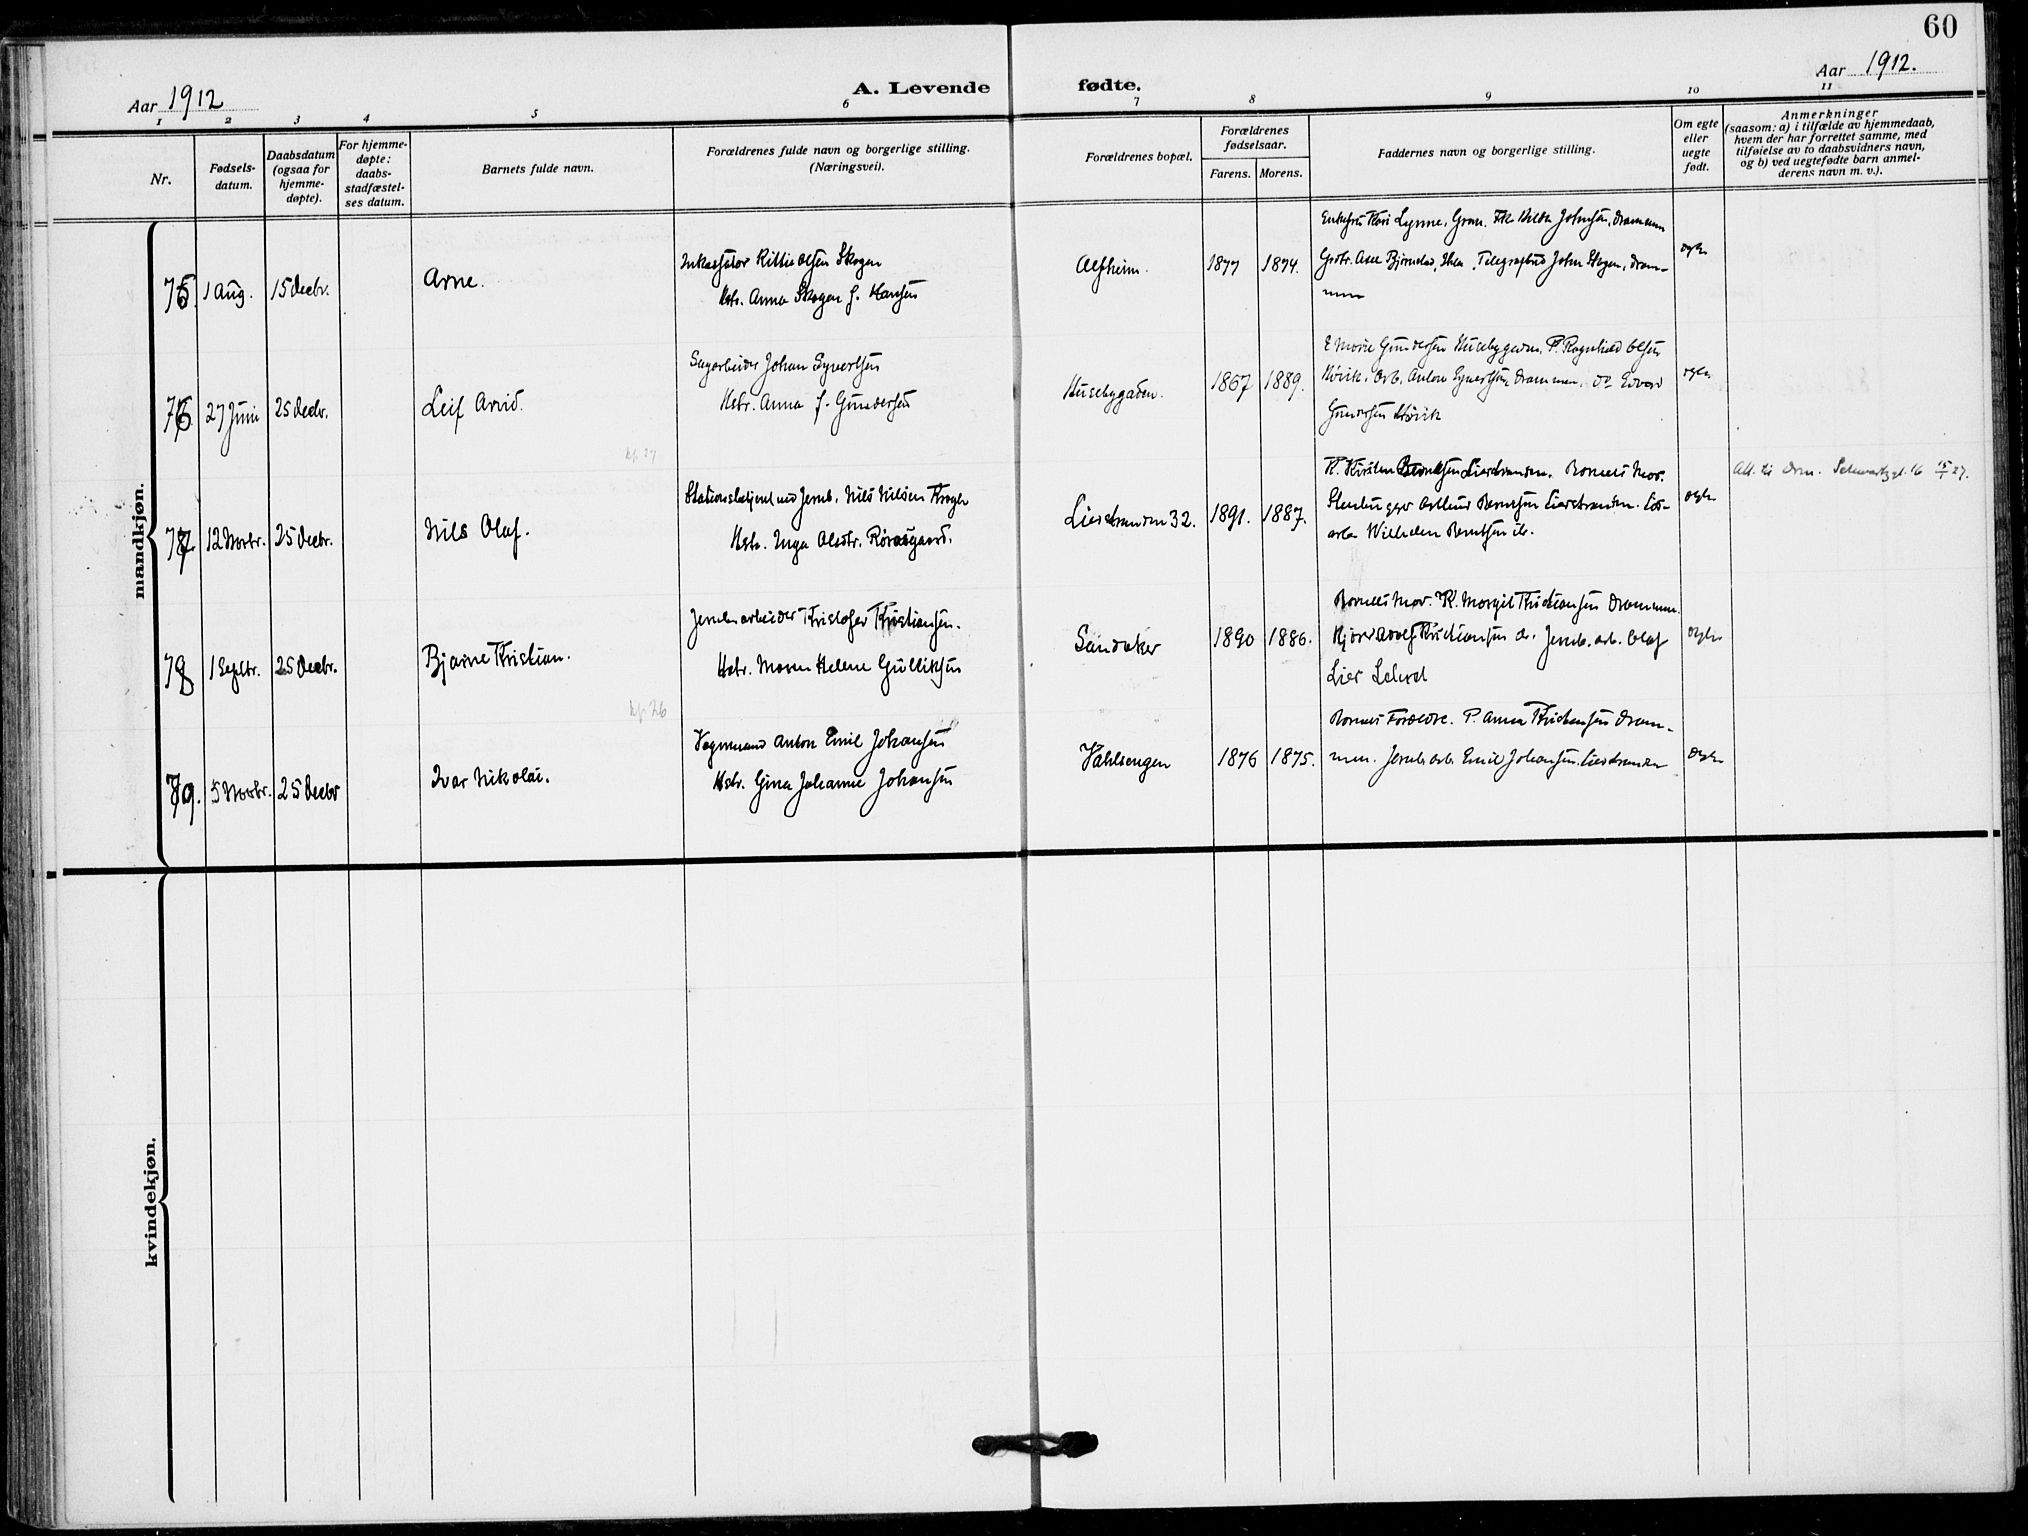 60
Aar 1912
A. Levende
fødte.
Aar 1912.
1 2 3 4 5 6 7 8 9 10 11
Nr.
Fødsels-
datum.
Daabsdatum
(ogsaa for
hjemme-
døpte).
For hjemme-
døpte:
daabs-
stadfæstel-
ses datum.
Barnets fulde navn.
Forældrenes fulde navn og borgerlige stilling.
(Næringsvei).
Forældrenes bopæl.
Forældrenes
fødselsaar.
Farens. Morens.
Faddernes navn og borgerlige stilling.
Om egte
eller
uegte
født.
Anmerkninger
(saasom: a) i tilfælde av hjemmedaab,
hvem der har forrettet samme, med
tilføielse av to daabsvidners navn,
og b) ved uegtefødte barn anmel-
derens navn m. v.).
mandkjøn.
75 1 Aug. 15 Decbr.
Arne.
Inkassator Kittil Olsen Skogen
Hstr. Anna Skogen f. Hansen
Alfheim.
1877 1874.
Enkefru Kari Lynne, Gran. Frk Hilda Johnsen, Drammen
Grbr. Axel Bjørnstad, Telegrafbud John Skogen, Dram-
men
egte
76 27 Juni 25 Decbr.
Leif Arvid.
kf. 27
Sagarbeider Johan Syvertsen
Hstr. Anna f. Gundersen
Husebygaden.
1867 1889.
E Marie Gundersen Husebygaden, P. Ragnhild Olsen
Høvik. Arb. Anton Syvertsen Drammen. do Edvard
Gundersen Høvik
egte
77 12 Novbr. 25 Decbr.
Nils Olaf.
Stationsbetjent ved Jernb. Nils Nilsen Krogh
Hstr. Inga Olsdtr. Røraasgaard.
Lierstranden 32.
1891. 1887.
K. Kirsten Berntsen Lierstranden. Barnets Mor.
Berntsen Lierstranden.
arb. Wilhelm Berntsen ib.
egte
Att. til Drm. 16 15/1 27.
78 1 Septbr. 25 Decbr.
Bjarne Kristian.
kf. 26
Jernbanearbeider Kristofer Kristiansen.
Hstr. Maren Helene Gulliksen
Sandaker
1890 1886.
Barnets Mor. K. Margit Kristiansen Drammen.
Adolf Kristiansen do. Jernb. arb. Olaf
Lier
egte
79. 5 Novbr. 25 Decbr
Ivar Nikolai.
Vognmand Anton Emil Johansen
Hstr. Gina Johanne Johansen
Vahlsengen
1876 1875.
Barnets Forældre. P. Anna Kristensen Dram-
men. Jernb. arb. Emil Johansen. Lierstranden
egte
kvindekjøn.